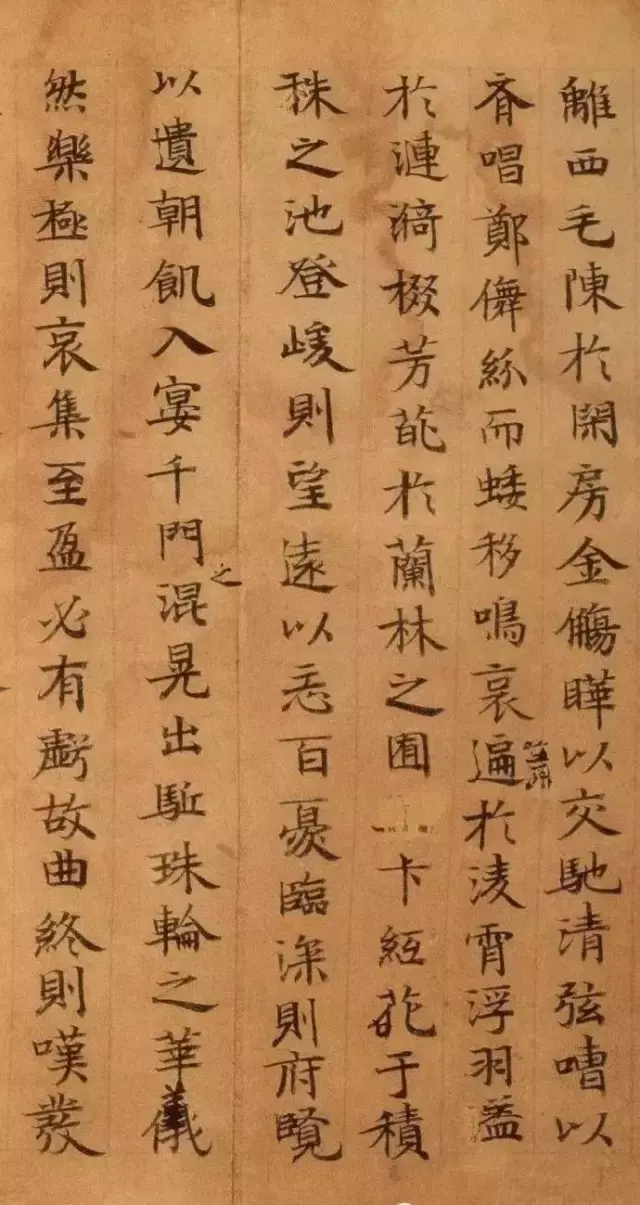 離西毛陳於閑房金觴曄以交馳清弦嘈以
齊唱鄭儛絲而蜲移鳴哀遍於淩霄浮羽蓋
於漣漪掇芳花於蘭林之囿卡紅花于積
秼之池登峻則望遠以忘百憂臨深則府覽
以遺朝飢入宴千門之混晃出駈珠輪之華儀
然樂極則哀集至盈必有虧故曲終則嘆發